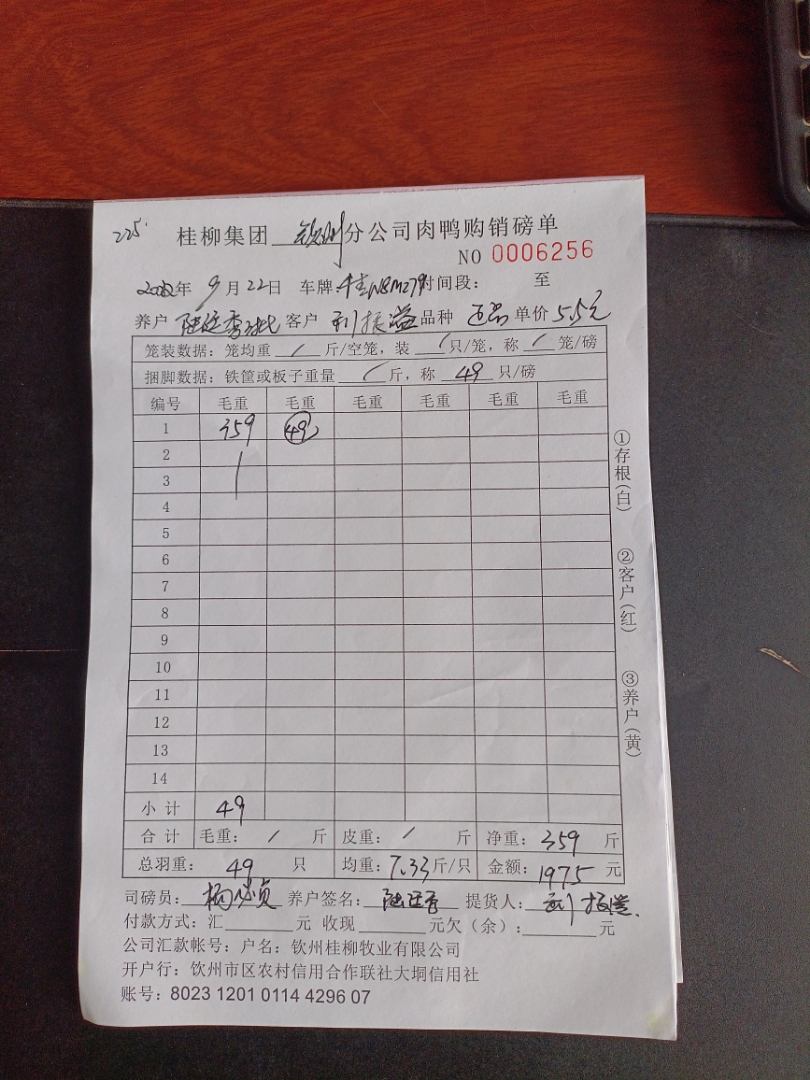 225.
桂柳集团 钦州 分公司肉鸭购销磅单
NO 0006256
2022年 9月22日 车牌: 时间段: 至
养户 客户 利振溢 品种 单价 5.5元
笼装数据: 笼均重 / 斤/空笼, 装 / 只/笼, 称 / 笼/磅
捆脚数据: 铁筐或板子重量 / 斤, 称 49 只/磅
编号 毛重 毛重 毛重 毛重 毛重 毛重
1 359 49
2
3
4
5
6
7
8
9
10
11
12
13
14
小 计 49
合 计 毛重: / 斤 皮重: / 斤 净重: 359 斤
总羽重: 49 只 均重: 7.33斤/只 金额: 1975 元
司磅员: 养户签名: 提货人: 利振溢
付款方式: 汇 元 收现 元欠(余): 元
公司汇款帐号: 户名: 钦州桂柳牧业有限公司
开户行: 钦州市区农村信用合作联社大垌信用社
账号: 8023 1201 0114 4296 07
①存根(白)
②客户(红)
③养户(黄)